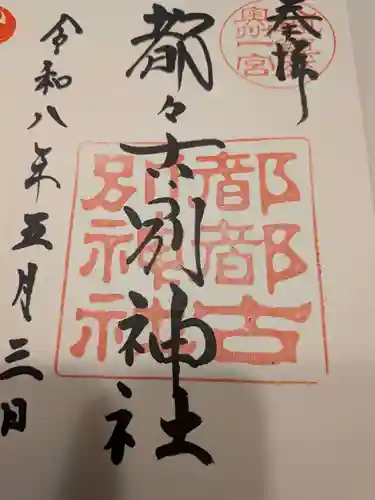 奉拝
奥州一宮
都々古別神社
都都古
別神社
令和八年五月三日